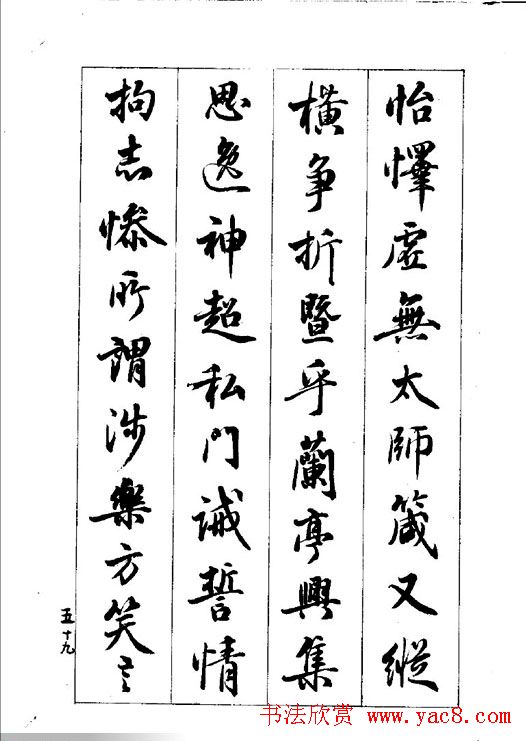 怡懌虛無太師箴又縱
橫争折暨乎蘭亭興集
思逸神超私門誡誓情
拘志惨所謂涉樂方笑言
五十九
书法欣赏 www.yac8.com